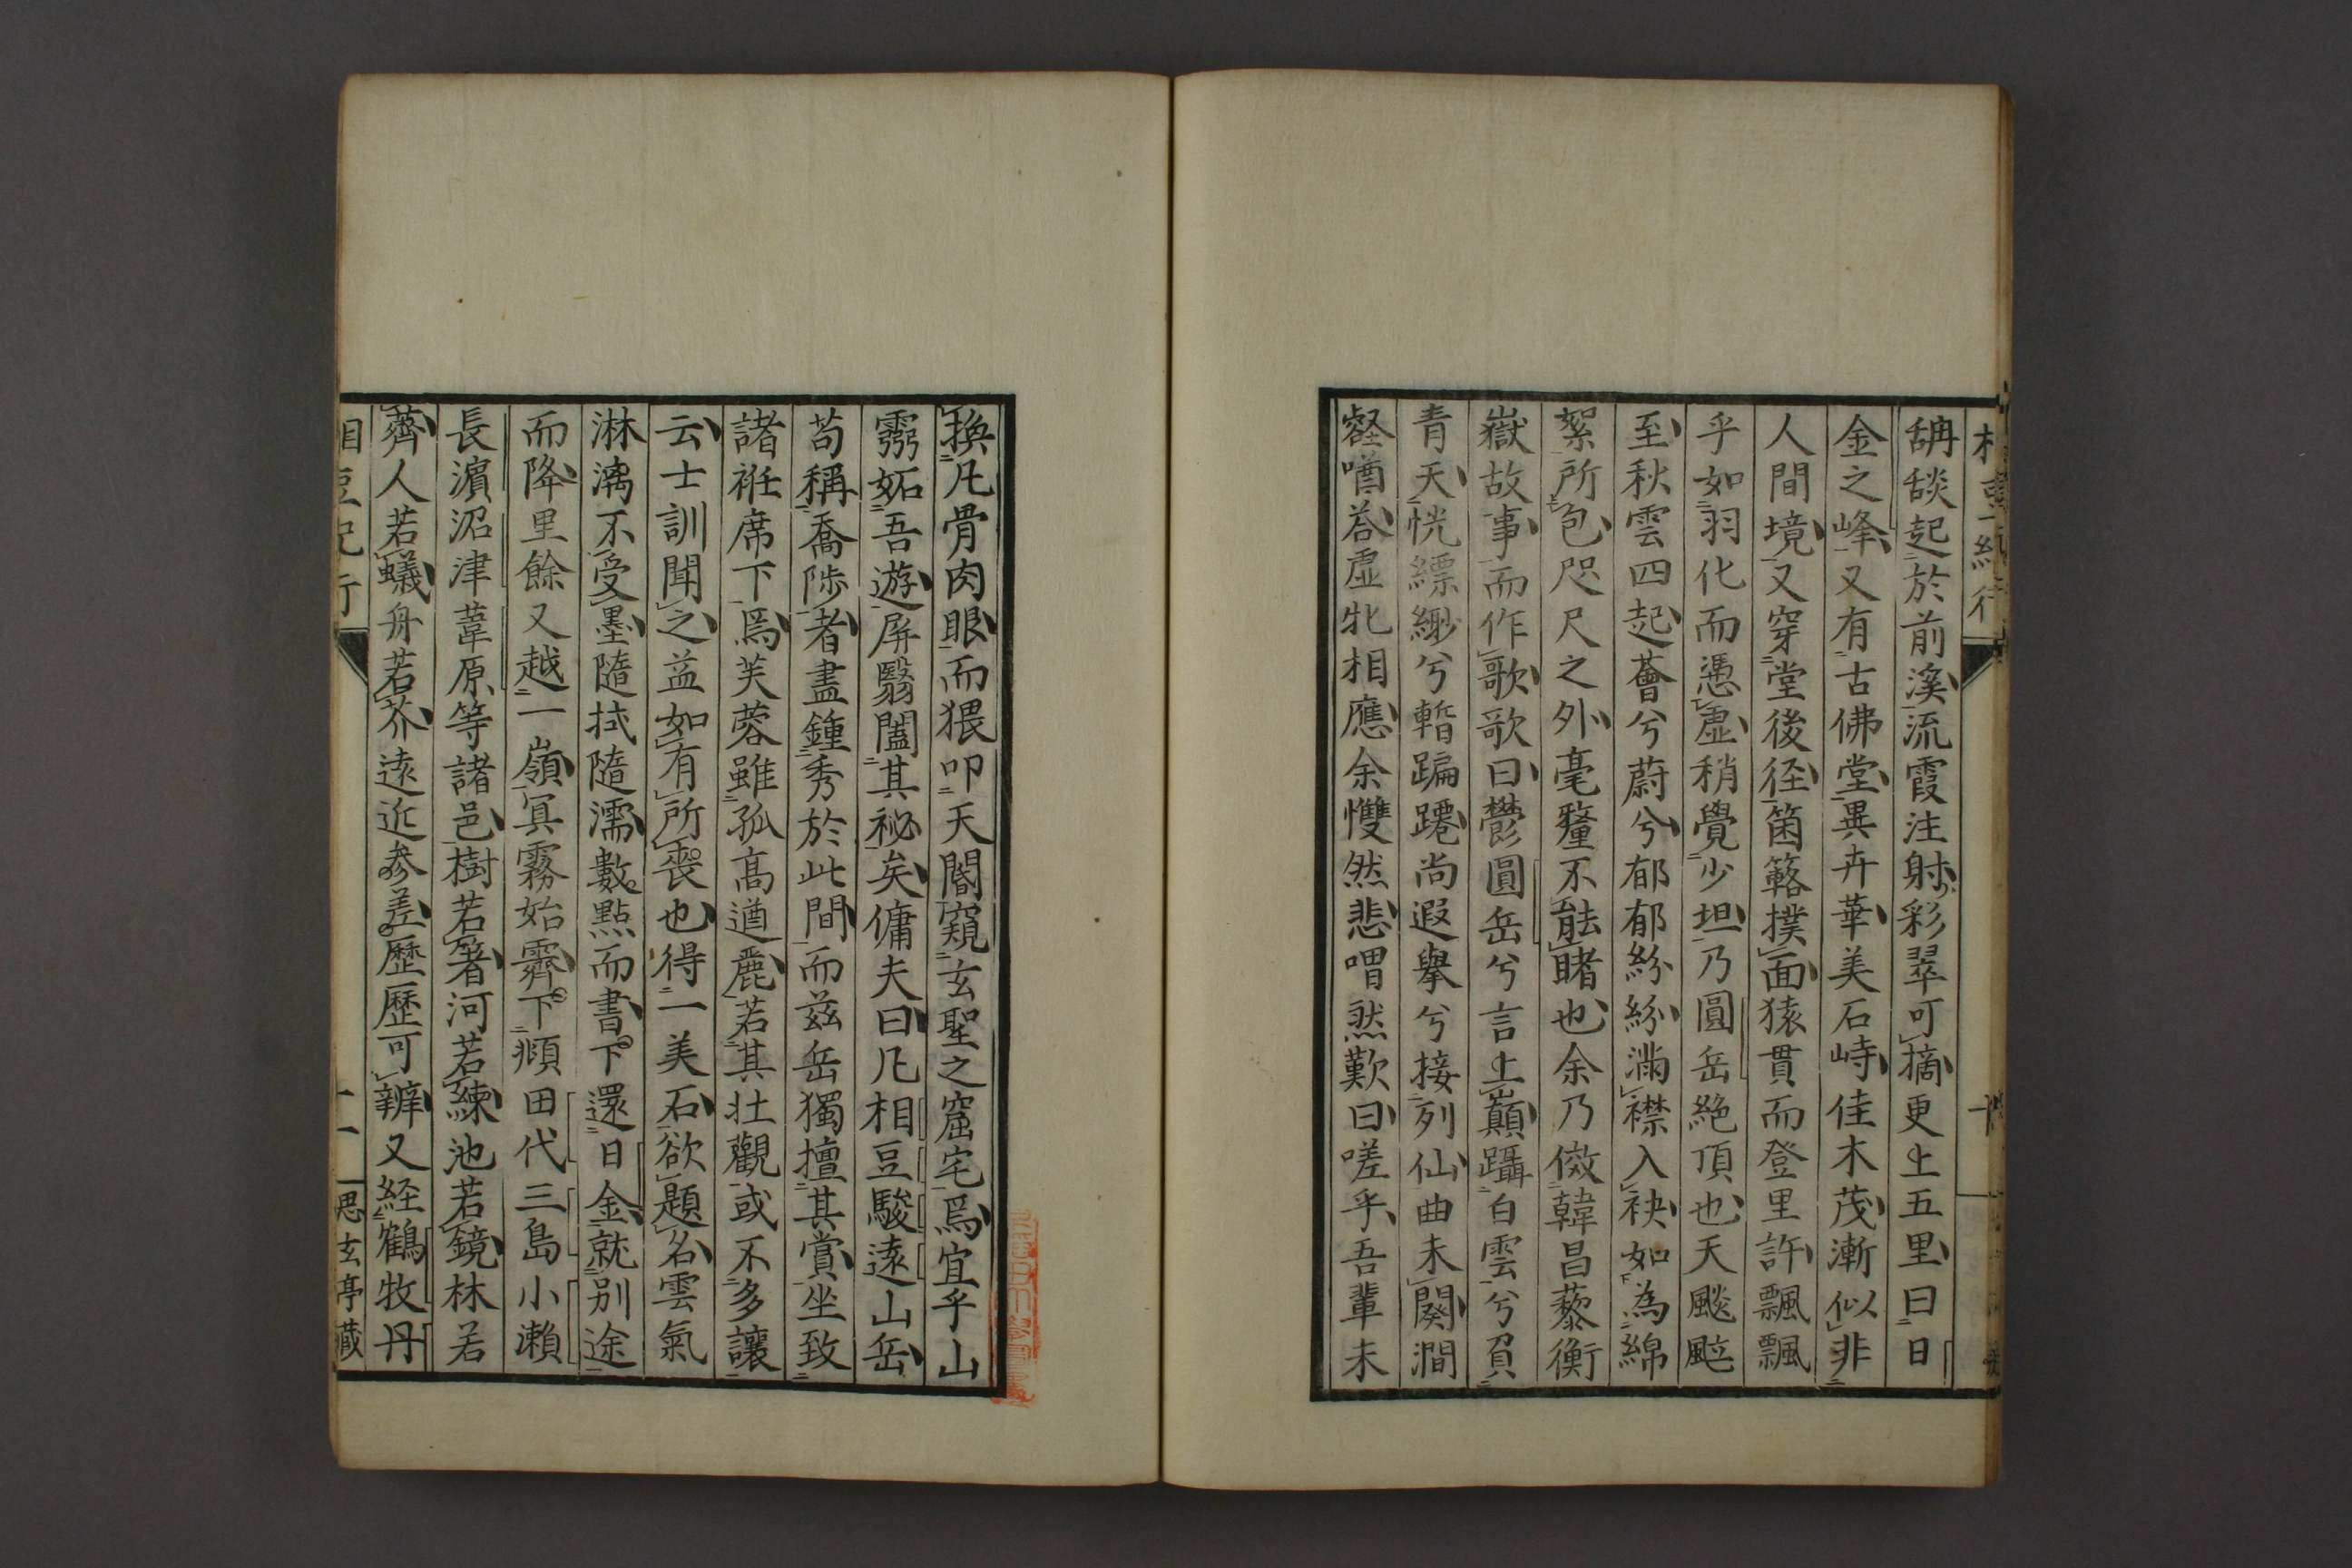 舑舕起於前溪流霞注射彩翠可摘更上五里曰日
金之峰又有古佛堂異卉華美石峙佳木茂漸似非
人間境又穿堂後径箘簵撲面猿貫而登里許飄飄
乎如羽化而憑虛稍覺少坦乃圓岳絶頂也天颷颭
至秋雲四起薈兮蔚兮郁郁紛紛滿襟入袂如為綿
絮所包咫尺之外毫釐不能睹也余乃倣韓昌藜衡
嶽故事而作歌歌曰鬱圓岳兮言上巔躡白雲兮負
青天恍縹緲兮暫蹁躚尚遐擧兮接列仙曲未闋澗
壑噂荅虛牝相應余戄然悲喟然歎曰嗟乎吾輩未
換凡骨肉眼而猥叩天閽窺玄聖之窟宅焉宜乎山
靈妬吾遊屏翳闔其祕矣傭夫曰凡相豆駿遠山岳
苟稱喬陟者盡鍾秀於此間而茲岳獨擅其賞坐致
諸袵席下焉芙蓉雖孤高遒麗若其壮觀或不多讓
云士訓聞之益如有所喪也得一美石欲題名雲氣
淋漓不受墨隨拭隨濡數點而書下還日金就别途
而降里餘又越一嶺冥霧始霽下頫田代三島小瀬
長濵沼津葦原等諸邑樹若箸河若練池若鏡林若
薺人若蟻舟若芥遠近參差歷歷可辧又経鶴牧丹
相豆紀行
十一
思玄亭藏